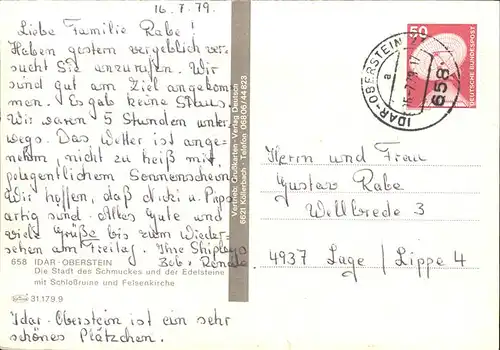 16.7.79.
Liebe Familie Rabe!
Haben gestern vergeblich ver-
sucht Sie anzurufen. Wir
sind gut am Ziel angekom-
men. Es gab keine Staus.
Wir waren 5 Stunden unter-
wegs. Das Wetter ist ange-
nehm, nicht zu heiß mit
gelegentlichem Sonnenschein.
Wir hoffen, daß
artig sind. Alles Gute und
viele Grüße bis zum Wieder-
sehen am Freitag. Ihre
Bob + Renate
658 IDAR-OBERSTEIN
Die Stadt des Schmuckes und der Edelsteine
mit Schloßruine und Felsenkirche
31.179.9
Idar-Oberstein ist ein sehr
schönes Plätzchen.
Vertrieb: Grußkarten-Verlag
6621 Köllerbach · Telefon 06806/44823
50
DEUTSCHE BUNDESPOST
IDAR-OBERSTEIN
a
658
Herrn und Frau
Gustav Rabe
Wellbrede 3
4937 Lage / Lippe 4